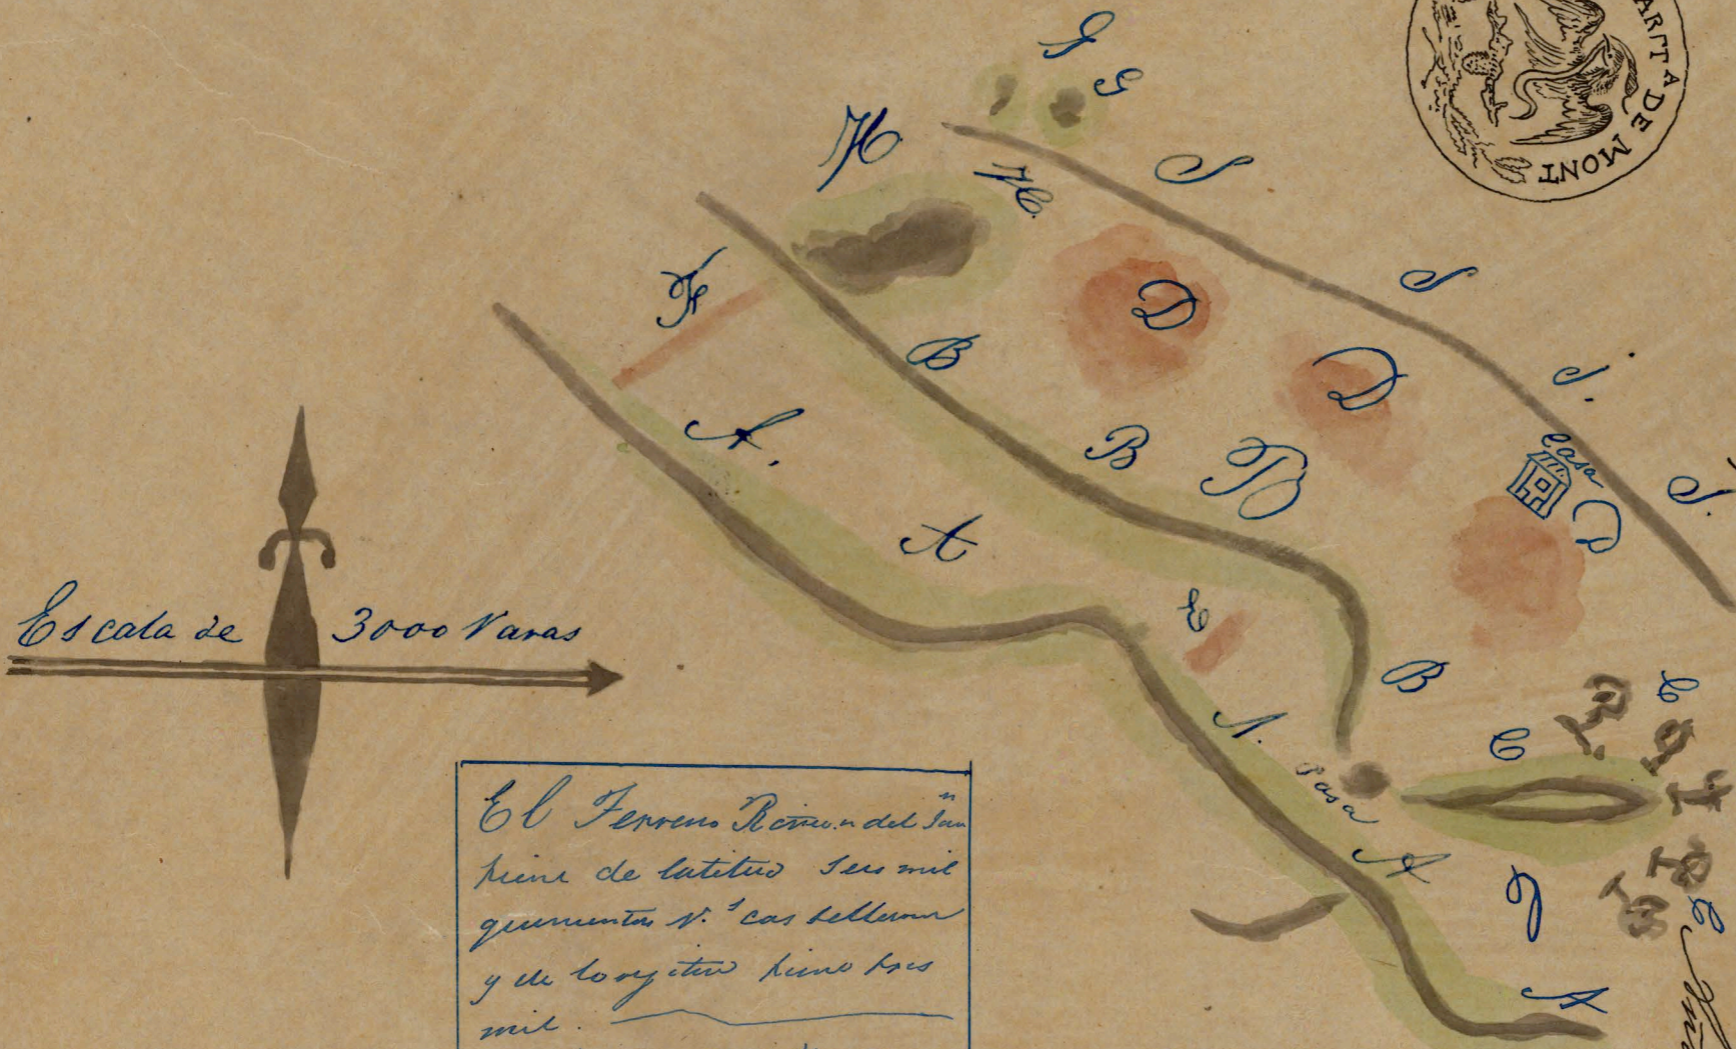 G
G
ARITA DE MONT
H
H
S
S
F
D
B
D
S.
A.
B
B
Casa
D
S.
A
E
Escala de 3000 Varas
B
C
C
A.
C
Pasa
A
A
El Terreno Rincon del San
tiene de latitud seis mil
quinientos v.s castellanas
y de longitud tiene tres
mil.